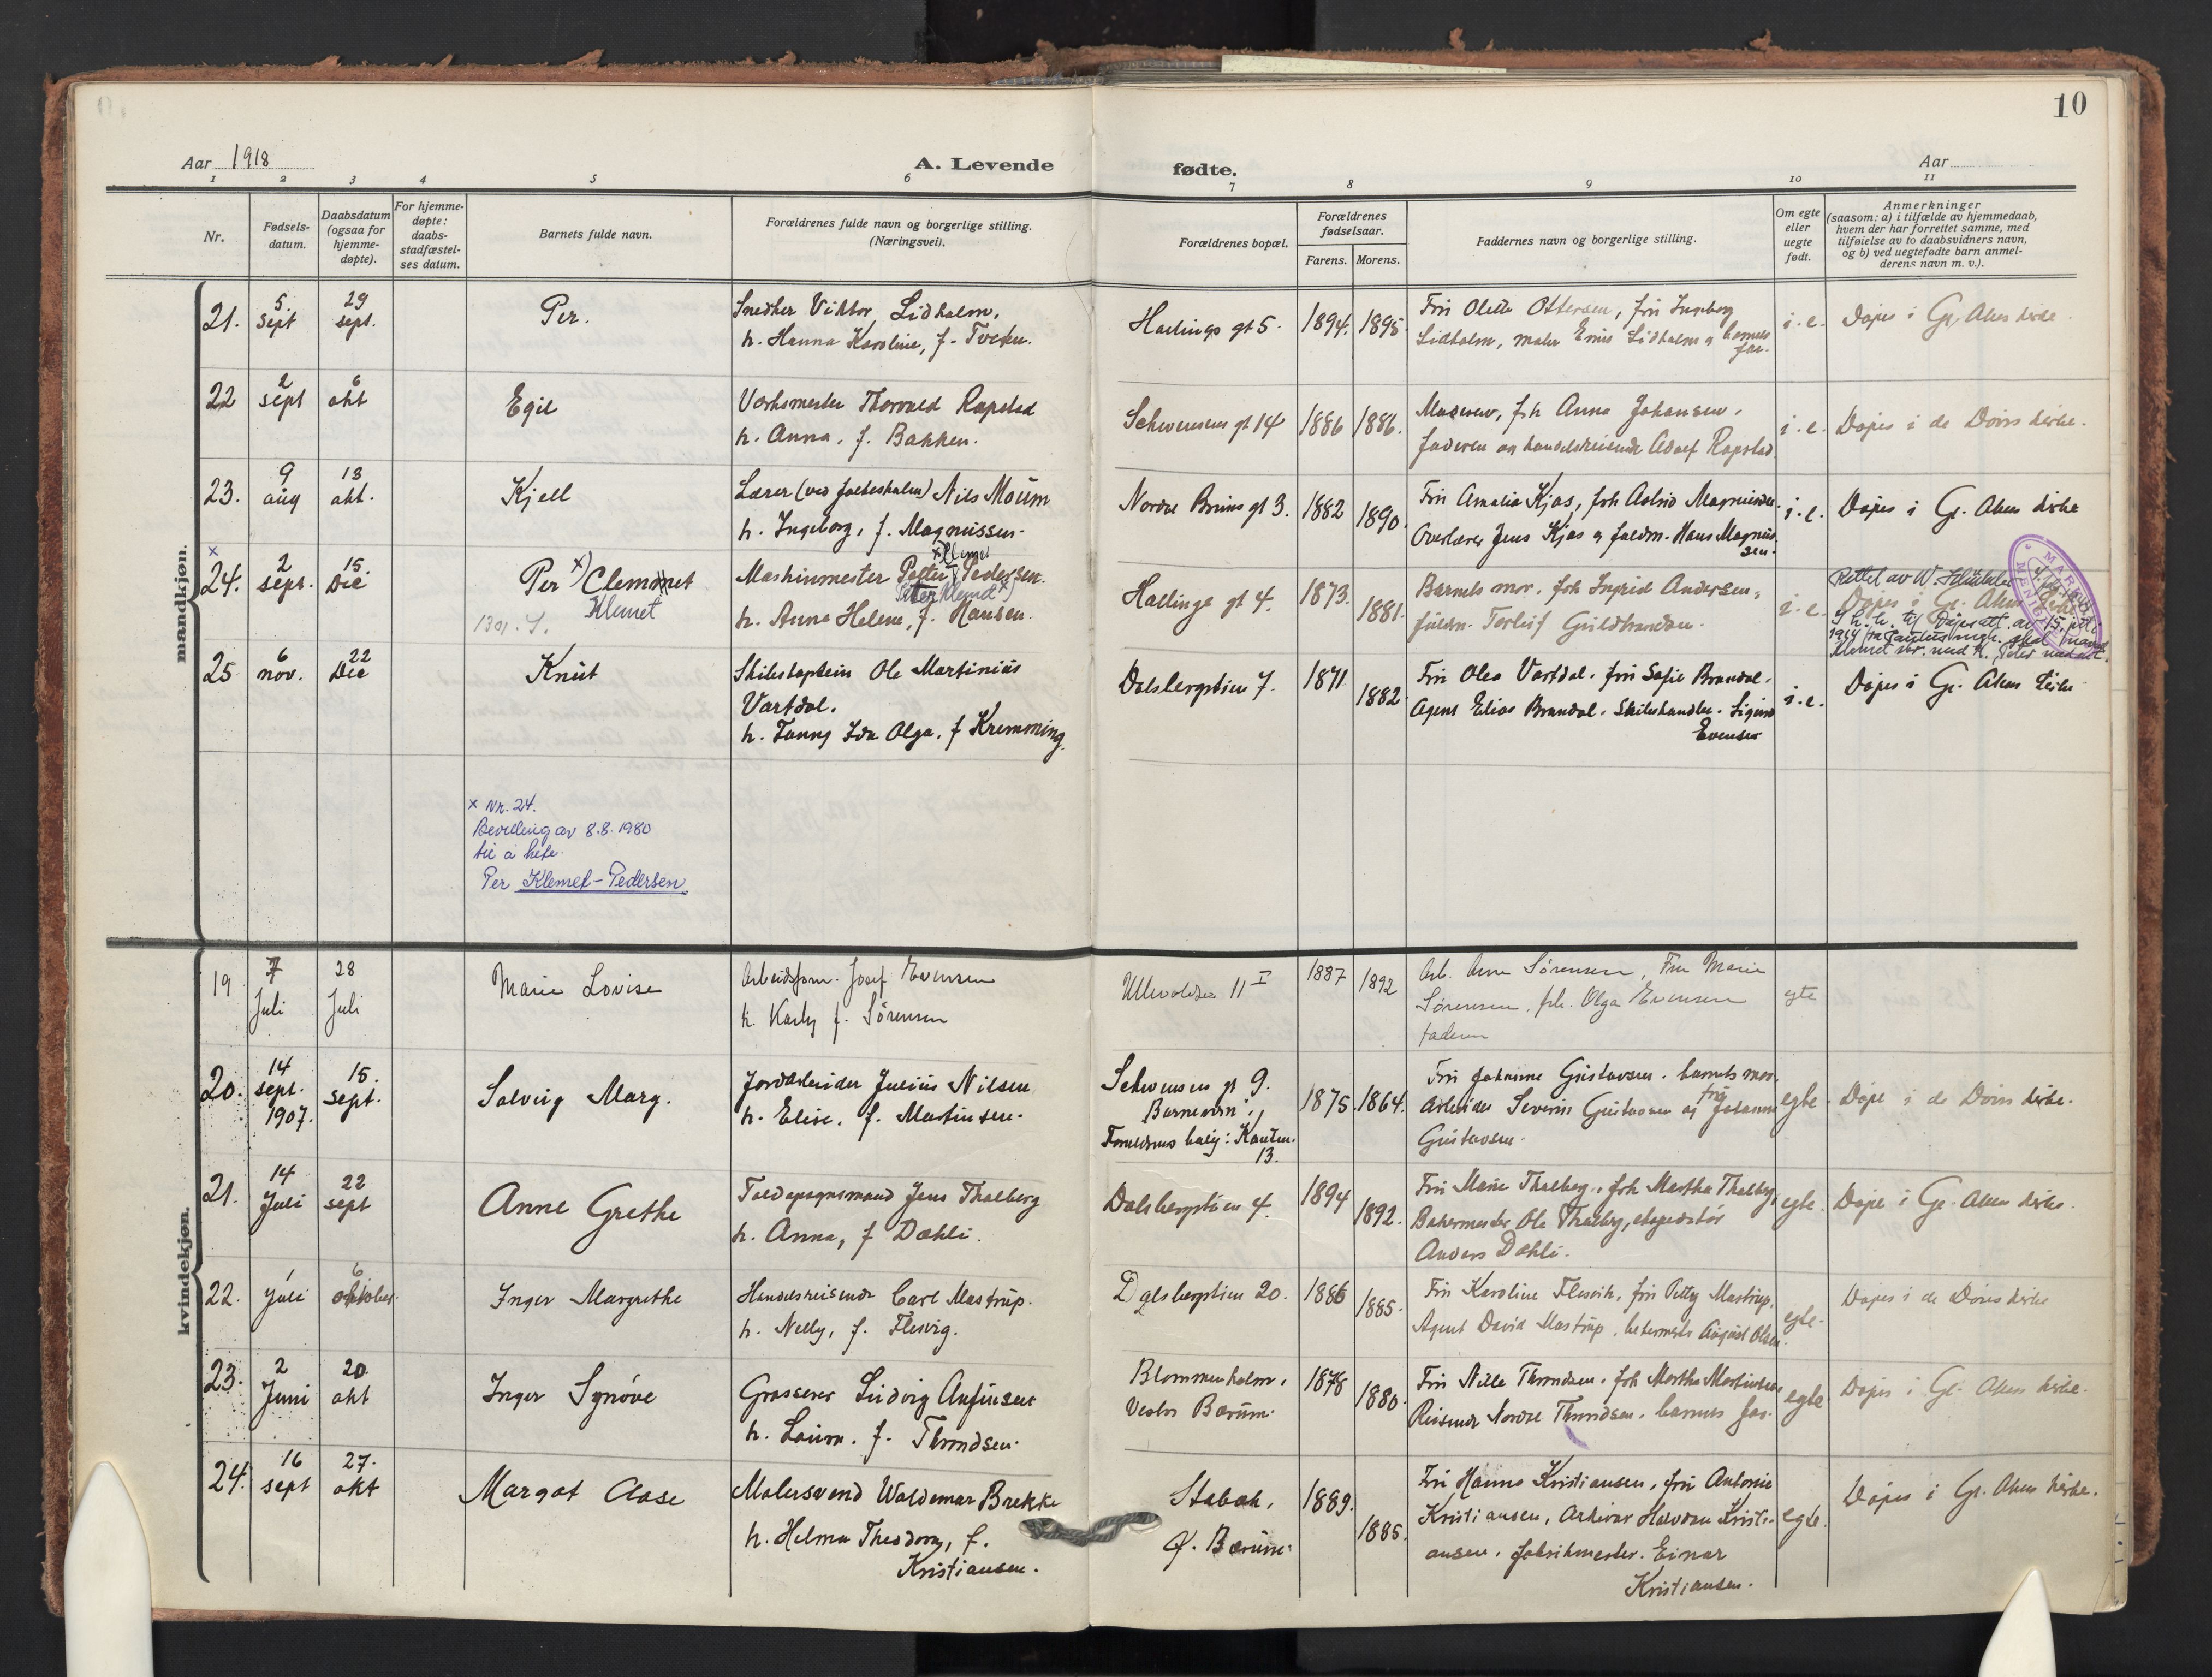 10
Aar 1918
A. Levende fødte.
Aar
1 2 3 4 5 6 7 8 9 10 11
Nr.
Fødsels-
datum.
Daabsdatum
(ogsaa for
hjemme-
døpte).
For hjemme-
døpte:
daabs-
stadfæstel-
ses datum.
Barnets fulde navn.
Forældrenes fulde navn og borgerlige stilling.
(Næringsvei).
Forældrenes bopæl.
Forældrenes
fødselsaar.
Farens. Morens.
Faddernes navn og borgerlige stilling.
Om egte
eller
uegte
født.
Anmerkninger
(saasom: a) i tilfælde av hjemmedaab,
hvem der har forrettet samme, med
tilføielse av to daabsvidners navn,
og b) ved uegtefødte barn anmel-
derens navn m. v.).
mandkjøn.
21.
5.
sept
29
sept.
Per.
Snedker Viktor Lidholm.
h. Hanna Karoline, f. Tveten.
Hallings gt 5.
1894. 1895.
Fru Olette Ottersen, fru Ingeborg
Lidholm, maler Lidholm og barnets
far.
i. e.
Døpt i Gl. Akers kirke.
22
2
sept
6
okt
Egil
Verksmester Thorvald Rapstad
h. Anna, f. Bakken.
Schwensens gt 14
1886 1886.
Moderen, frk Anna Johansen,
faderen og handelsreisende Adolf Rapstad
i. e.
Døpt i de Døves kirke.
23.
9
aug
13
okt.
Kjell
Lærer (ved folkeskolen) Nils Moum
h. Ingeborg, f. Magnussen.
Nordre Bruns gt 3.
1882 1890.
Fru Amalia Kjos, frk Astrid Magnussen.
Overlærer Jens Kjos og fuldm. Hans Magnus-
sen.
i. e.
Døpt i Gl. Akers kirke
x
24.
2
sept.
15.
Dec
Per x) Clemmet
Klemet
x) Klemet
Maskinmester Petter Pedersen.
Peter Klemet x)
h. Anna Helene, f. Hansen.
Hallings gt 4.
1873. 1881.
Barnets mor, frk Ingrid Andersen,
fuldm. Torleif Guldbrandsen.
i. e.
Rettet av W.
Døpt i Gl. Akers kirke
Klemet skr. med K. Peter med ett t.
25
6
nov.
22
Dec
Knut
Skibskaptein Ole Martinius
Vartdal.
h. Fanny Ida Olga, f Kremming.
Dalsbergstien 7.
1871. 1882.
Fru Olea Vartdal. fru Sofie Brandal.
Agent Elias Brandal. Skibshandler. Sigurd
Evensen
i. e.
Døpt i Gl. Akers kirke
x Nr. 24.
Bevilling av 8.8.1980
til å hete
Per Klemet-Pedersen
kvindekjøn.
19
7
Juli
28
Juli
Marie Lovise
Arbeidsform. Josef Evensen
h. Karly f. Sørensen
Ullevoldsv 11 I
1887 1892
Arb. Arne Sørensen, Fru Marie
Sørensen, frk. Olga Evensen
faderen
egte
20.
14
sept.
1907.
15.
sept.
Solveig Marg.
Jordarbeider Julius Nilsen
h. Elise, f. Martinsen.
Schwensens gt 9.
Barnevern
Forældrenes bolig:
13.
1875. 1864.
Fru Johanne Gustavsen. barnets mor.
Arbeider Severin Gustavsen og fru Johanne
Gustavsen.
egte.
Døpt i de Døves kirke.
21.
14
Juli
22
sept
Anne Grethe
Toldopsynsmand Jens Thalberg
h. Anna, f Dæhli.
Dalsbergstien 4.
1894 1892.
Fru Marie Thalberg, frk Martha Thalberg,
Bakermester Ole Thalberg, ekspeditør
Anders Dæhli.
egte.
Døpt i Gl. Akers kirke.
22.
1
Juli
6
oktober.
Inger Margrethe
Handelsreisende Carl Mastrup.
h. Nelly, f. Flesvig.
Dalsbergstien 20.
1886 1885.
Fru Karoline Flesvik, fru Petty Mastrup,
Agent David Mastrup, August Olsen.
egte.
Døpt i de Døves kirke
23.
2
Juni
20
okt
Inger Synøve
Grosserer Ludvig Anfinsen
h. Laura, f. Throndsen.
Blommenholm,
Vestre Bærum.
1878 1880.
Fru Nille Throndsen, frk Martha Martinsen
Reisende Nordre Throndsen, barnets far.
egte
Døpt i Gl. Akers kirke.
24.
16
sept
27.
okt
Margot Aase
Malersvend Waldemar Brekke
h. Helma Theodora, f.
Kristiansen.
Stabæk,
Ø. Bærum.
1889. 1885.
Fru Hanna Kristiansen, fru Antonie
Kristiansen, Arkivar Halvdan Kristi-
ansen, fabrikmester. Einar
Kristiansen.
egte.
Døpt i Gl. Akers kirke.